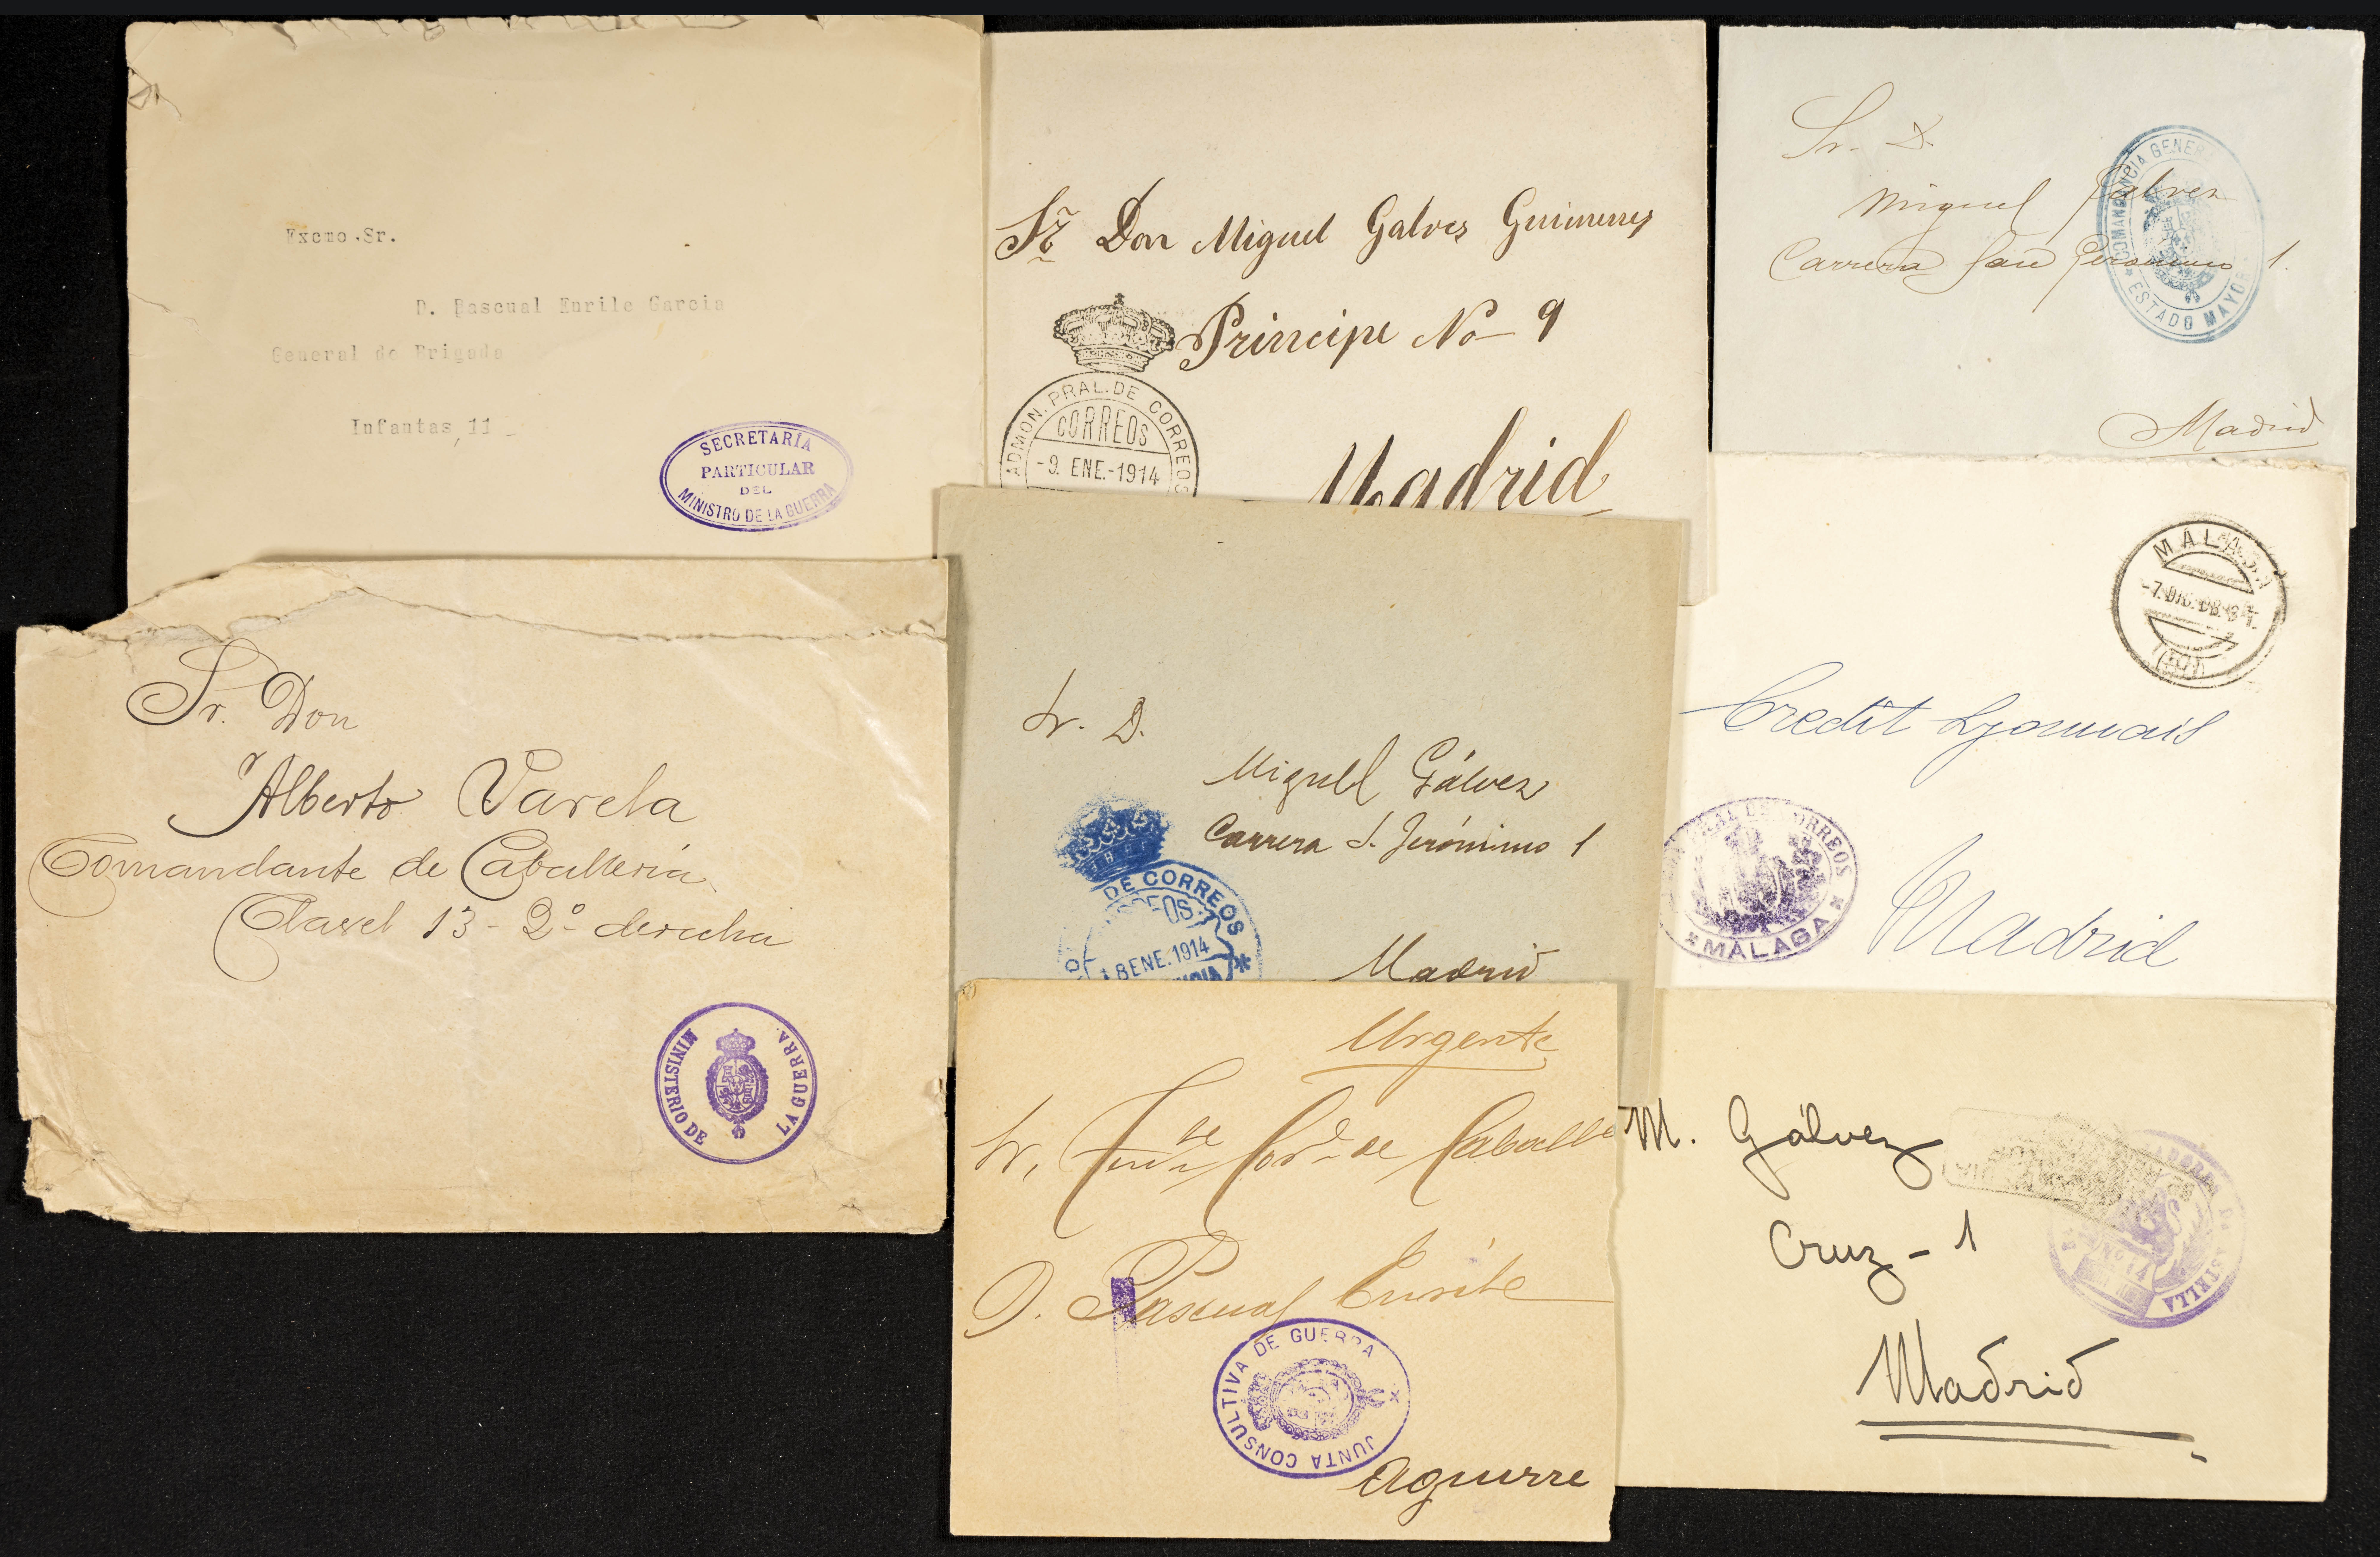 Excmo.Sr.
D. Pascual Enrile Garcia
General de Brigada
Infantas, 11
SECRETARÍA
PARTICULAR
DEL
MINISTRO DE LA GUERRA
Sr. Don Miguel Galvez
Principe No 9
Madrid
ADMON. PRAL. DE CORREOS
CORREOS
-9. ENE.-1914
Sr. D.
Miguel Galvez
Carrera San Jeronimo 1.
Madrid
COMANDANCIA GENER
ESTADO MAYOR
Sr. Don
Alberto Varela
Comandante de Caballeria
Clavel 13 - 2º derecha
MINISTERIO DE LA GUERRA
Sr. D.
Miguel Gálvez
Carrera S. Jerónimo 1
Madrid
DE CORREOS
8 ENE. 1914
MALAGA
-7. DIC.
Credit Lyonnais
Madrid
RAL DE CORREOS
MÁLAGA
Urgente
Sr. Tente Cor. de Caball
D. Pascual Enrile
JUNTA CONSULTIVA DE GUERRA
Aguirre
M. Gálvez
Cruz - 1
Madrid
ESTRELLA